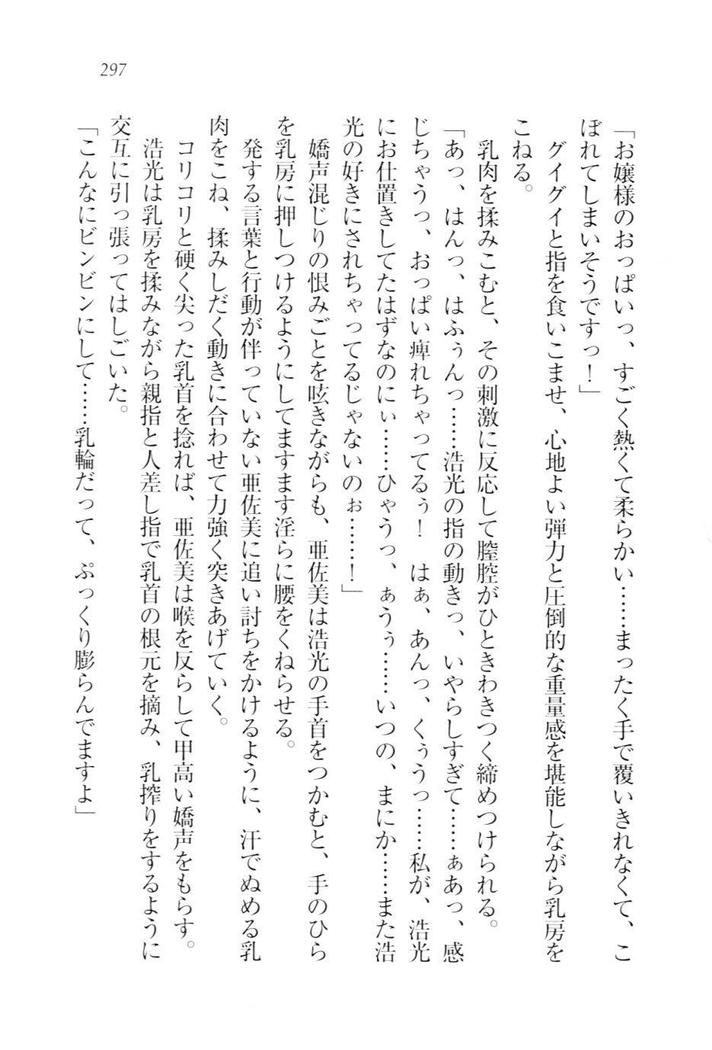 297
「お嬢様のおっぱいっ、すごく熱くて柔らかい……まったく手で覆いきれなくて、こ
ぼれてしまいそうですっ！」
グイグイと指を食いこませ、心地よい弾力と圧倒的な重量感を堪能しながら乳房を
こねる。
乳肉を揉みこむと、その刺激に反応して膣腔がひときわきつく締めつけられる。
「あっ、はんっ、はふぅんっ……浩光の指の動きっ、いやらしすぎて……ぁあっ、感
じちゃうっ、おっぱい痺れちゃってるぅ！　はぁ、あんっ、くぅうっ……私が、浩光
にお仕置きしてたはずなのにぃ……ひゃうっ、ぁうぅ……いつの、まにか……また浩
光の好きにされちゃってるじゃないのぉ……！」
嬌声混じりの恨みごとを呟きながらも、亜佐美は浩光の手首をつかむと、手のひら
を乳房に押しつけるようにしてますます淫らに腰をくねらせる。
発する言葉と行動が伴っていない亜佐美に追い討ちをかけるように、汗でぬめる乳
肉をこね、揉みしだく動きに合わせて力強く突きあげていく。
コリコリと硬く尖った乳首を捻れば、亜佐美は喉を反らして甲高い嬌声をもらす。
浩光は乳房を揉みながら親指と人差し指で乳首の根元を摘み、乳搾りをするように
交互に引っ張ってはしごいた。
「こんなにビンビンにして……乳輪だって、ぷっくり膨らんでますよ」